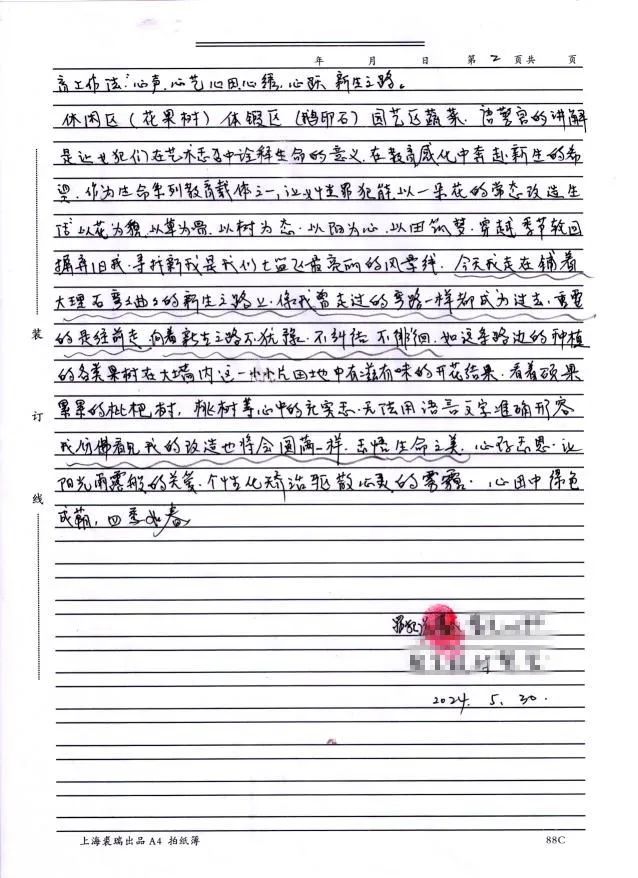 年 月 日 第 2 页共 页
育工作法:心声、心艺、心田、心缘、心跃、新生之路。
休闲区(花果树)体锻区(鹅卵石)园艺区蔬菜、 警官的讲解
是让 犯们在艺术 中诠释生命的意义,在教育感化中奔赴新生的希
望,作为生命系列教育载体之一,让 罪犯能以一朵花的常态改造生
活,以花为貌,以草为骨,以树为态,以阳为心,以田筑梦,穿越季节轮回
摒弃旧我,寻找新我是我们 监 最亮丽的风景线。今天我走在铺着
大理石弯弯曲曲的新生之路上,像我曾走过的弯路一样都成为过去,重要
的是往前走,向着新生之路不犹豫、不纠结、不徘徊,如这条路边的种植
的各类果树在大墙内这一小小片田地中有滋有味的开花结果。看着硕果
累累的枇杷树,桃树等心中的充实感无法用语言文字准确形容
我仿佛看见我的改造也将会圆满一样,去悟生命之美,心存志愿,让
阳光雨露般的关爱、个性化矫治驱散心灵的雾霾。心田中绿色
成荫,四季如春
2024. 5. 30.
装
订
线
上海裘瑞出品A4 拍纸簿 88C